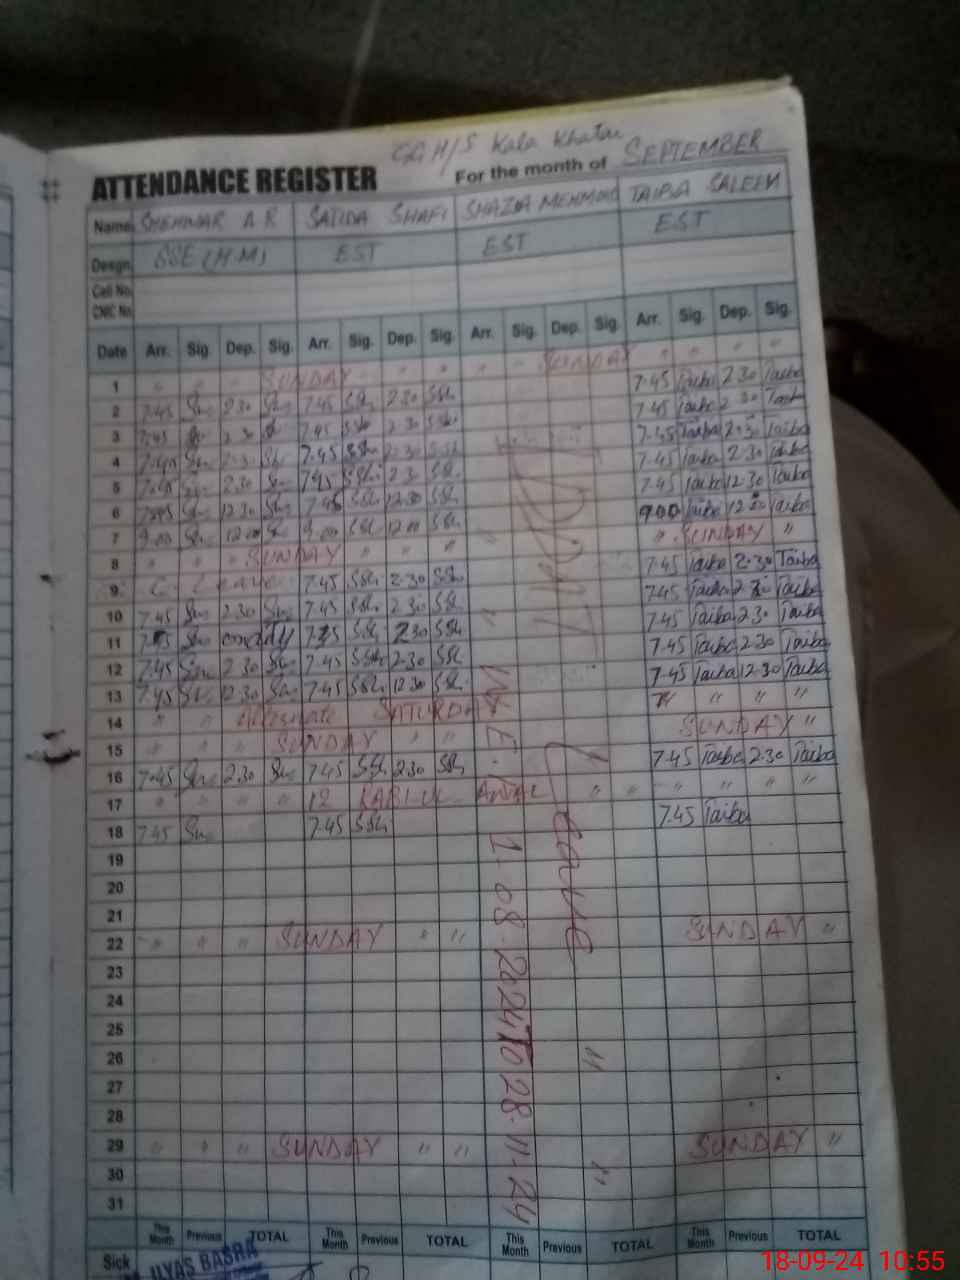 GGH/S Kala Khatai
ATTENDANCE REGISTER For the month of SEPTEMBER
Name SHEHWAR A R SAJIDA SHAFI SHAZIA MEHMOOD TAIBA SALEEM
Desgn. SSE (H.M) EST EST EST
Cell No.
CNIC No.
Date Arr. Sig. Dep. Sig. Arr. Sig. Dep. Sig. Arr. Sig. Dep. Sig. Arr. Sig. Dep. Sig.
1 " " " SUNDAY " " " " " SUNDAY " " " "
2 7.45 2.30 7.45 SSh 2.30 SSh 7.45 Taiba 2.30 Taiba
3 7.45 2.30 7.45 SSh 2.30 SSh 7.45 Taiba 2.30 Taiba
4 7.45 2.30 7.45 SSh 2.30 SSh 7.45 Taiba 2.30 Taiba
5 7.45 2.30 7.45 SSh 2.30 SSh 7.45 Taiba 2.30 Taiba
6 7.45 12.30 7.45 SSh 12.30 SSh 7.45 Taiba 12.30 Taiba
7 9.00 12.00 9.00 SSh 12.00 SSh 9.00 Taiba 12.00 Taiba
8 " " SUNDAY " " " " " SUNDAY "
9 C Leave 7.45 SSh 2.30 SSh 7.45 Taiba 2.30 Taiba
10 7.45 2.30 7.45 SSh 2.30 SSh 7.45 Taiba 2.30 Taiba
11 7.45 7.45 SSh 2.30 SSh 7.45 Taiba 2.30 Taiba
12 7.45 2.30 7.45 SSh 2.30 SSh 7.45 Taiba 2.30 Taiba
13 7.45 12.30 7.45 SSh 12.30 SSh 7.45 Taiba 12.30 Taiba
14 " " Alternate SATURDAY " " " "
15 " " " SUNDAY " " SUNDAY "
16 7.45 2.30 7.45 SSh 2.30 SSh 7.45 Taiba 2.30 Taiba
17 " " " " 12 RABI-UL-AWAL " " " " " "
18 7.45 7.45 SSh 7.45 Taiba
19
20
21
22 " " " SUNDAY " " SUNDAY "
23
24
25
26 "
27
28
29 " " " SUNDAY " " SUNDAY "
30 "
31
IDDAT Leave
W.E.F 1.08.2024 TO 28.11.24
This Month Previous TOTAL This Month Previous TOTAL This Month Previous TOTAL This Month Previous TOTAL
Sick
ILYAS BASRA
18-09-24 10:55